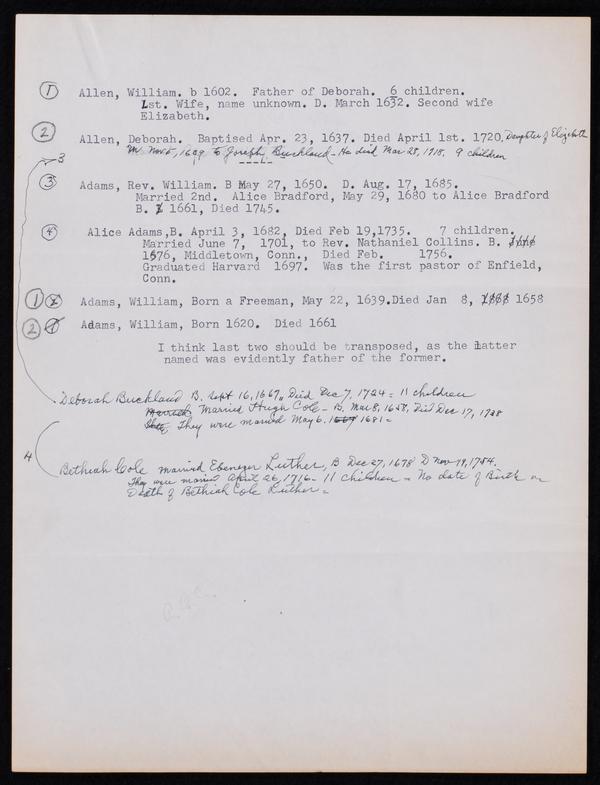 ① Allen, William. b 1602. Father of Deborah. 6 children.
1st. Wife, name unknown. D. March 1632. Second wife
Elizabeth.
② Allen, Deborah. Baptised Apr. 23, 1637. Died April 1st. 1720. Daughter of Elizabeth
M Nov 5, 1659 to Joseph Buckland - He died Mar 28, 1718, 9 children
3
③ Adams, Rev. William. B May 27, 1650. D. Aug. 17, 1685.
Married 2nd. Alice Bradford, May 29, 1680 to Alice Bradford
B. 1661, Died 1745.
④ Alice Adams,B. April 3, 1682, Died Feb 19,1735. 7 children.
Married June 7, 1701, to Rev. Nathaniel Collins. B.
1676, Middletown, Conn., Died Feb. 1756.
Graduated Harvard 1697. Was the first pastor of Enfield,
Conn.
① ② Adams, William, Born a Freeman, May 22, 1639.Died Jan 8, 1658
② ① Adams, William, Born 1620. Died 1661
I think last two should be transposed, as the latter
named was evidently father of the former.
Deborah Buckland B. Sept 16, 1667, Died Dec 7, 1724 = 11 children
Married Married Hugh Cole - B. Mar 8, 1658, Died Dec 17, 1728
They were married May 6. 1681 =
4
Bethiah Cole married Ebenezer Luther, B Dec 27, 1678 D Nov 19, 1754.
They were married April 26, 1716 - 11 children = No date of Birth or
Death of Bethiah Cole Luther =